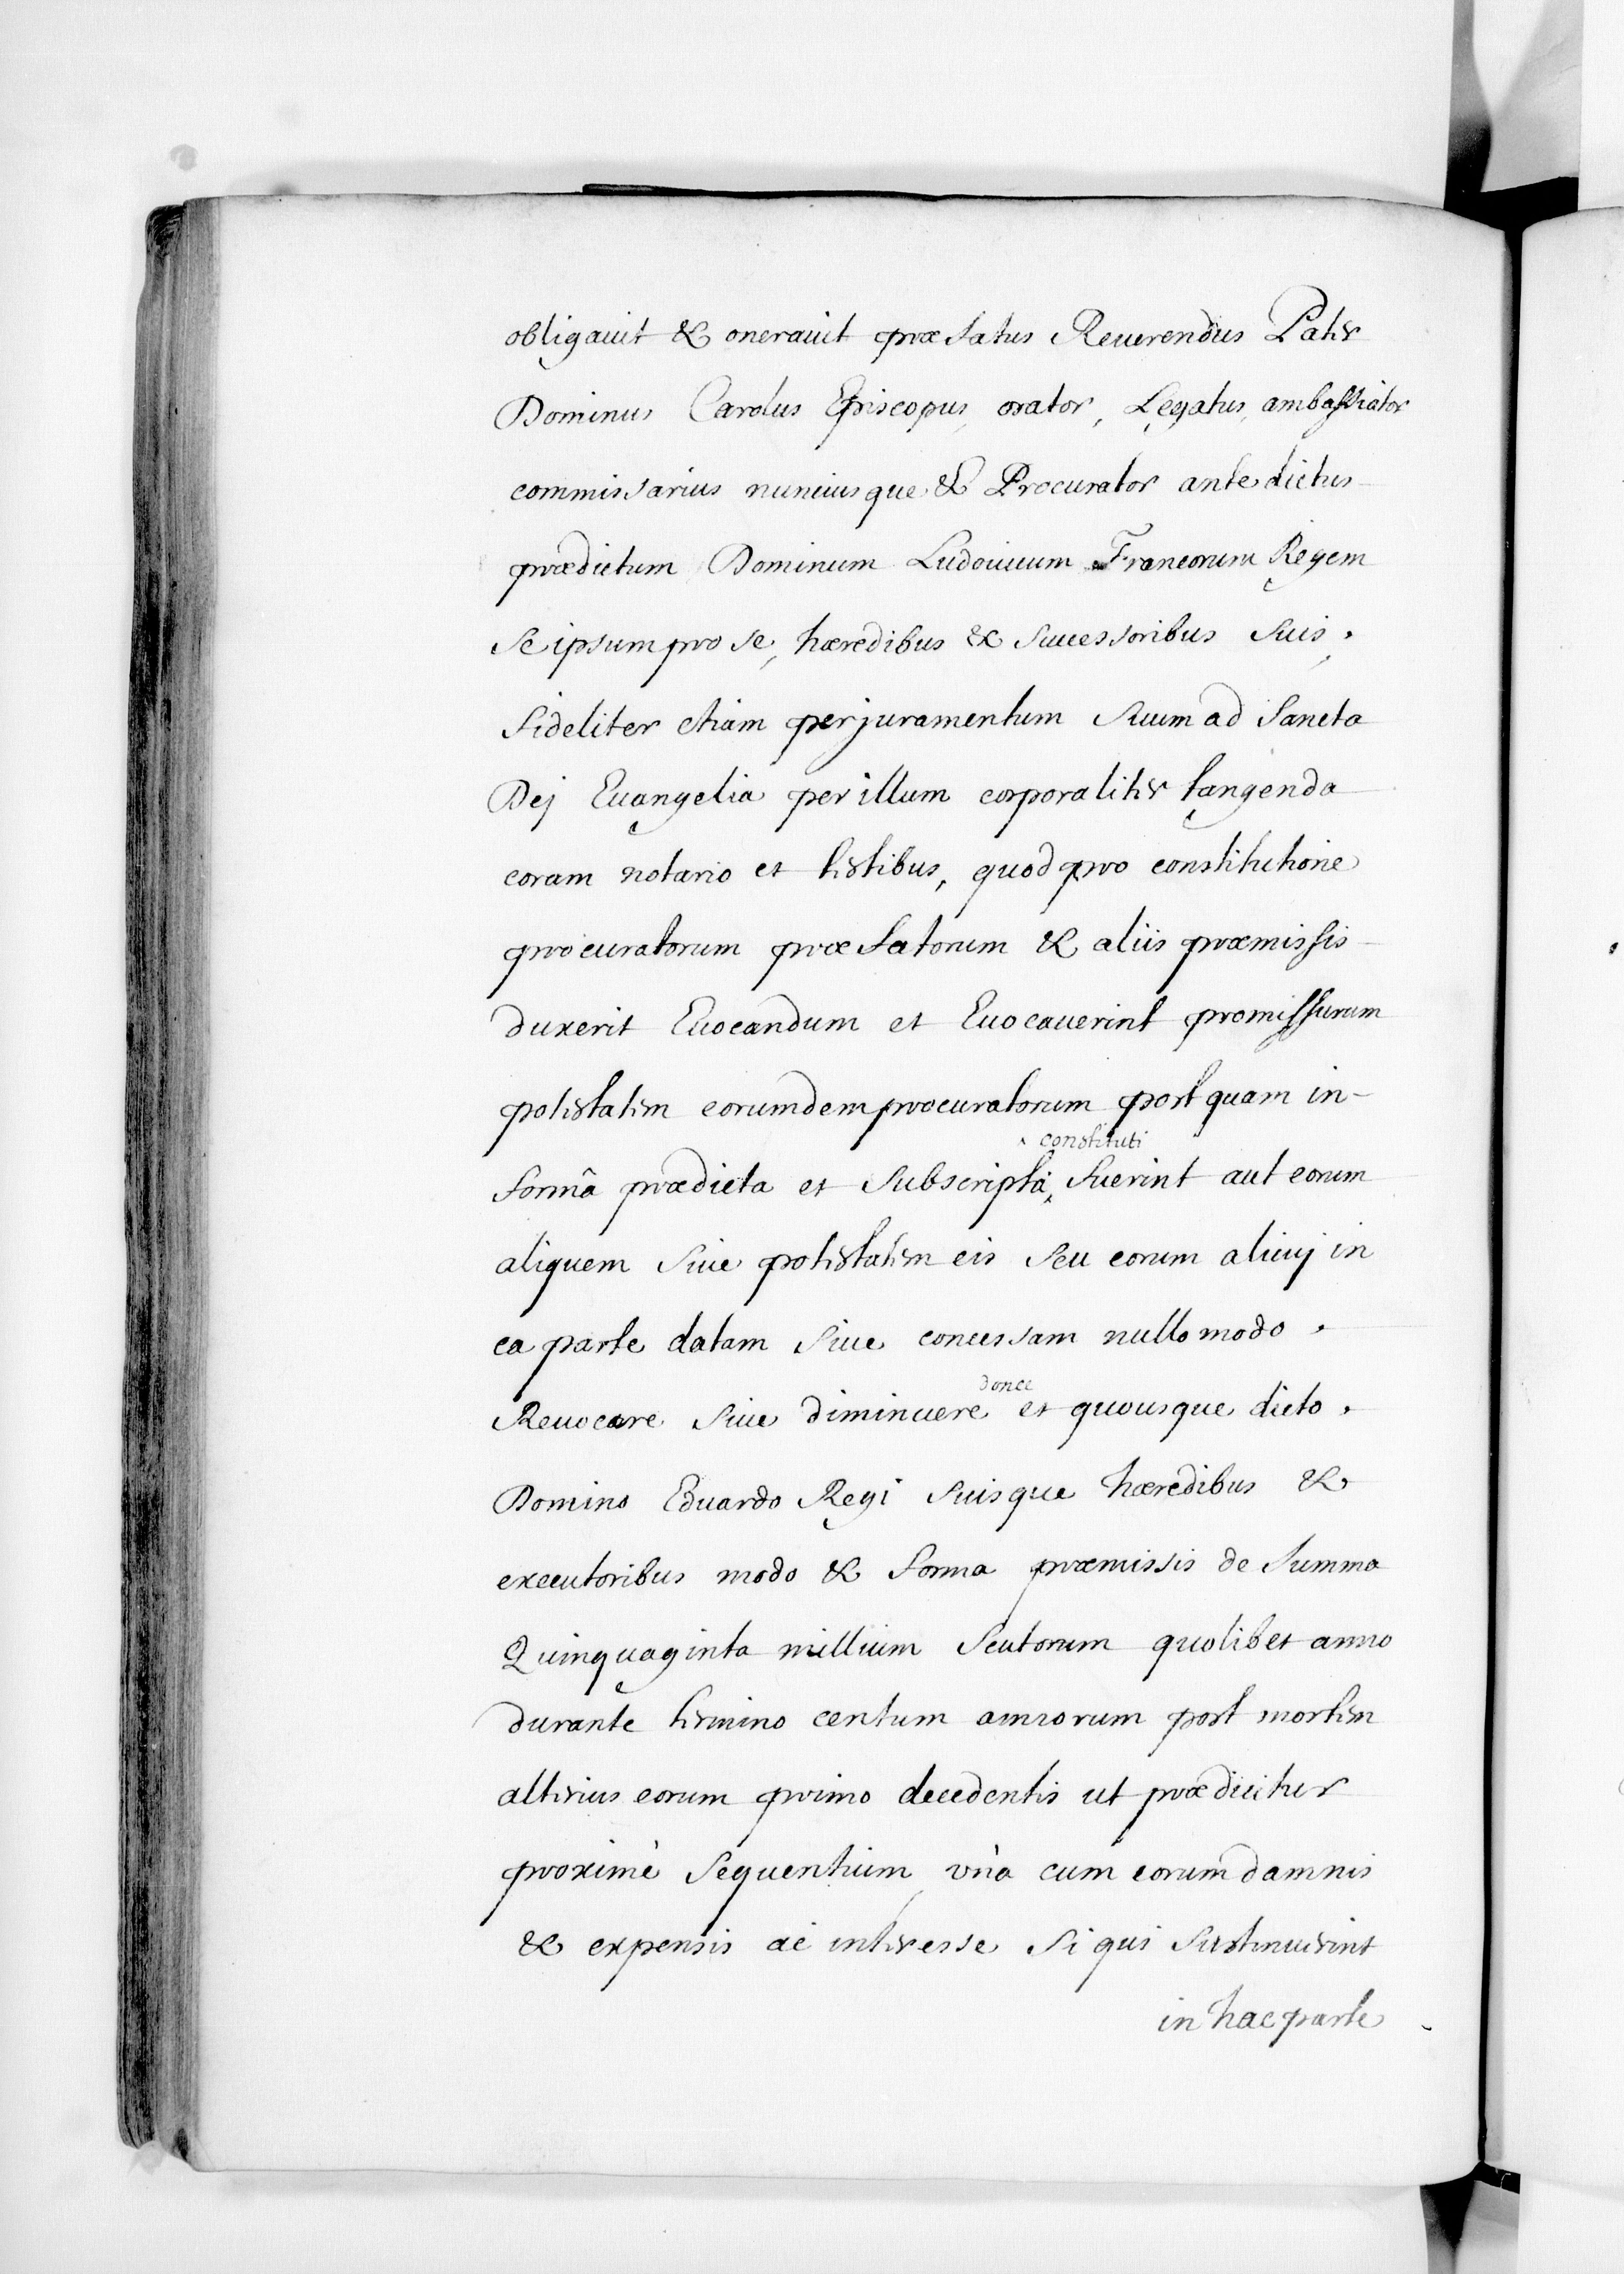 obligauit & onerauit præfatus Reuerendus Pater
Dominus Carolus Episcopus, orator, Legatus, ambassiator
commissarius nunciusque & Procurator antedictus
prædictum Dominum Ludouicum Francorum Regem
Se ipsum pro se, hæredibus & successoribus suis,
fideliter etiam per juramentum suum ad Sancta
Dej Euangelia per illum corporaliter tangenda
coram notario et testibus, quod pro constitutione
procuratorum præfatorum & aliis præmissis
duxerit Euocandum et Euocauerint promissurum
potestatem eorumdem procuratorum postquam in-
formâ prædicta et subscriptâ ^ constituti fuerint aut eorum
aliquem siue potestatem eis seu eorum alicuj in
ea parte datam siue concessam nullo modo
Reuocare siue diminuere donec et quousque dicto
Domino Eduardo Regi suisque hæredibus &
executoribus modo & forma præmissis de Summa
Quinquaginta millium Scutorum quolibet anno
durante termino centum annorum post mortem
alterius eorum primo decedentis ut prædicitur
proximè sequentium, vnà cum eorum damnis
& expensis ac interesse si qui sustinuerint
in hac parte